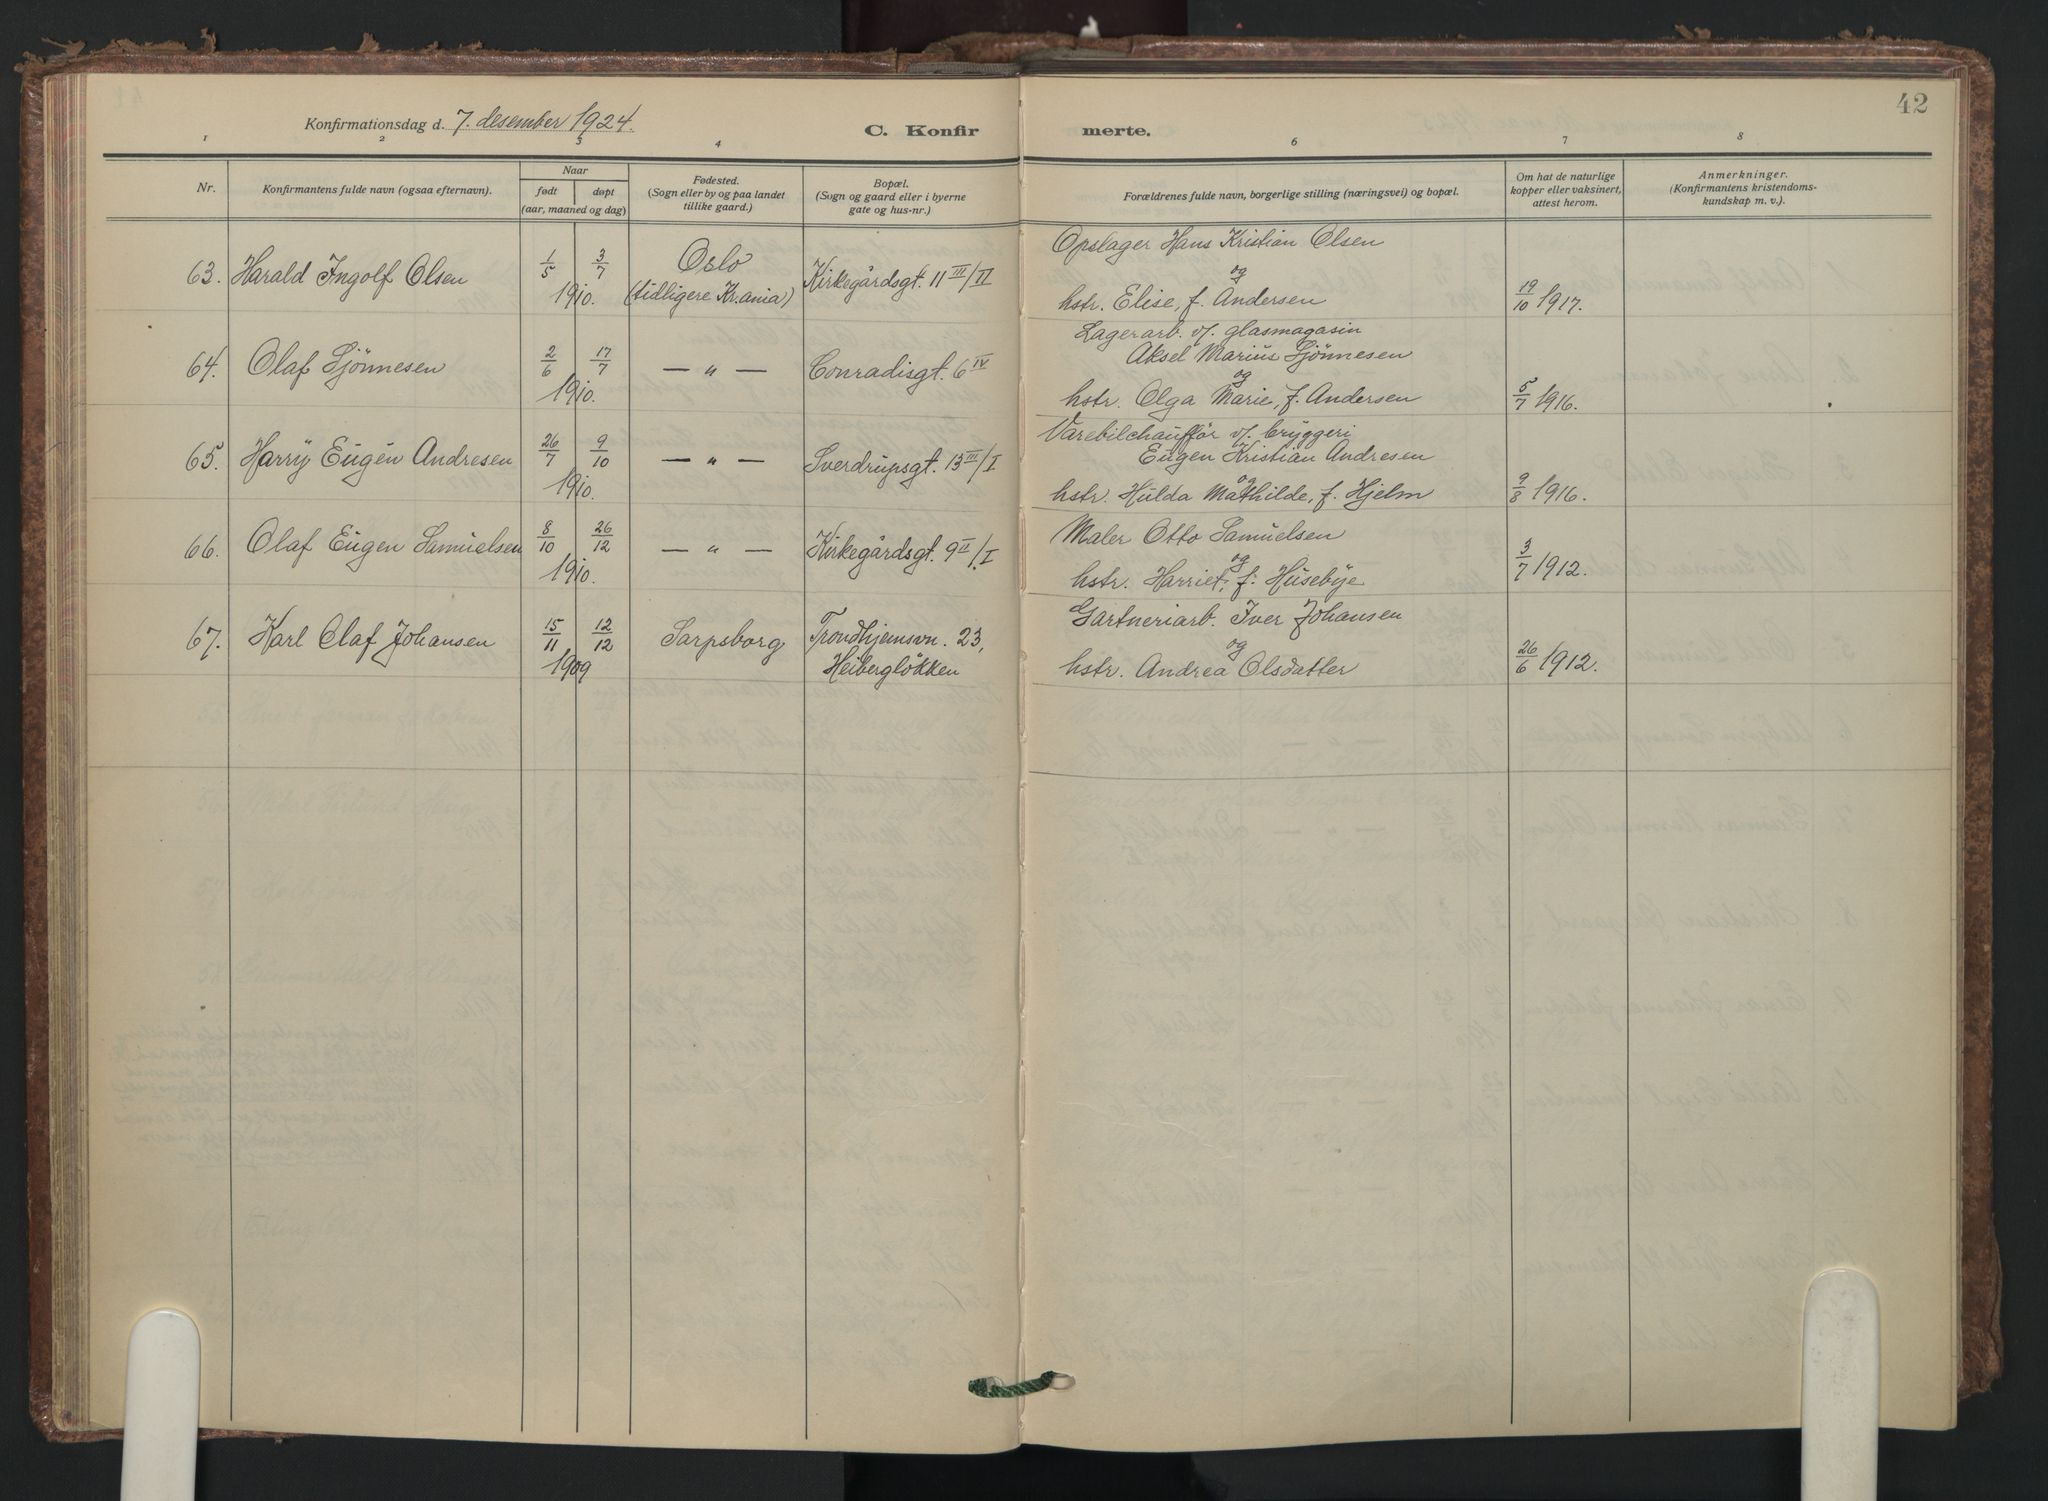 42
Konfirmationsdag d. 7. desember 1924.
C. Konfirmerte.
1 2 3 4 6 7 8
Nr.
Konfirmantens fulde navn (ogsaa efternavn).
Naar
født døpt
(aar, maaned og dag)
Fødested.
(Sogn eller by og paa landet
tillike gaard.)
Bopæl.
(Sogn og gaard eller i byerne
gate og hus-nr.)
Forældrenes fulde navn, borgerlige stilling (næringsvei) og bopæl.
Om hat de naturlige
kopper eller vaksinert,
attest herom.
Anmerkninger.
(Konfirmantens kristendoms-
kundskap m. v.).
63. Harald Ingolf Olsen 1/5 3/7 1910. Oslo (tidligere Kr.ania) Kirkegårdsgt. 11 III/II
Opslager Hans Kristian Olsen
og
hstr. Elise, f. Andersen 19/10 1917.
64. Olaf Sjönnesen 2/6 17/7 1910. — " — Conradisgt. 6 IV
Lagerarb. v/. glasmagasin
Aksel Marius Sjönnesen
og
hstr. Olga Marie, f. Andersen 5/7 1916.
65. Harry Eugen Andresen 26/7 9/10 1910. — " — Sverdrupsgt. 13 III/I
Varebilchauffør v/. bryggeri
Eugen Kristian Andresen
og
hstr. Hulda Mathilde, f. Hjelm 9/8 1916.
66. Olaf Eugen Samuelsen 8/10 26/12 1910. — " — Kirkegårdsgt. 9 II/I
Maler Otto Samuelsen
og
hstr. Harriet, f. Husebye 3/7 1912.
67. Karl Olaf Johansen 15/11 12/12 1909 Sarpsborg Trondhjemsvn. 23,
Heibergløkken
Gartneriarb. Iver Johansen
og
hstr. Andrea Olsdatter 26/6 1912.